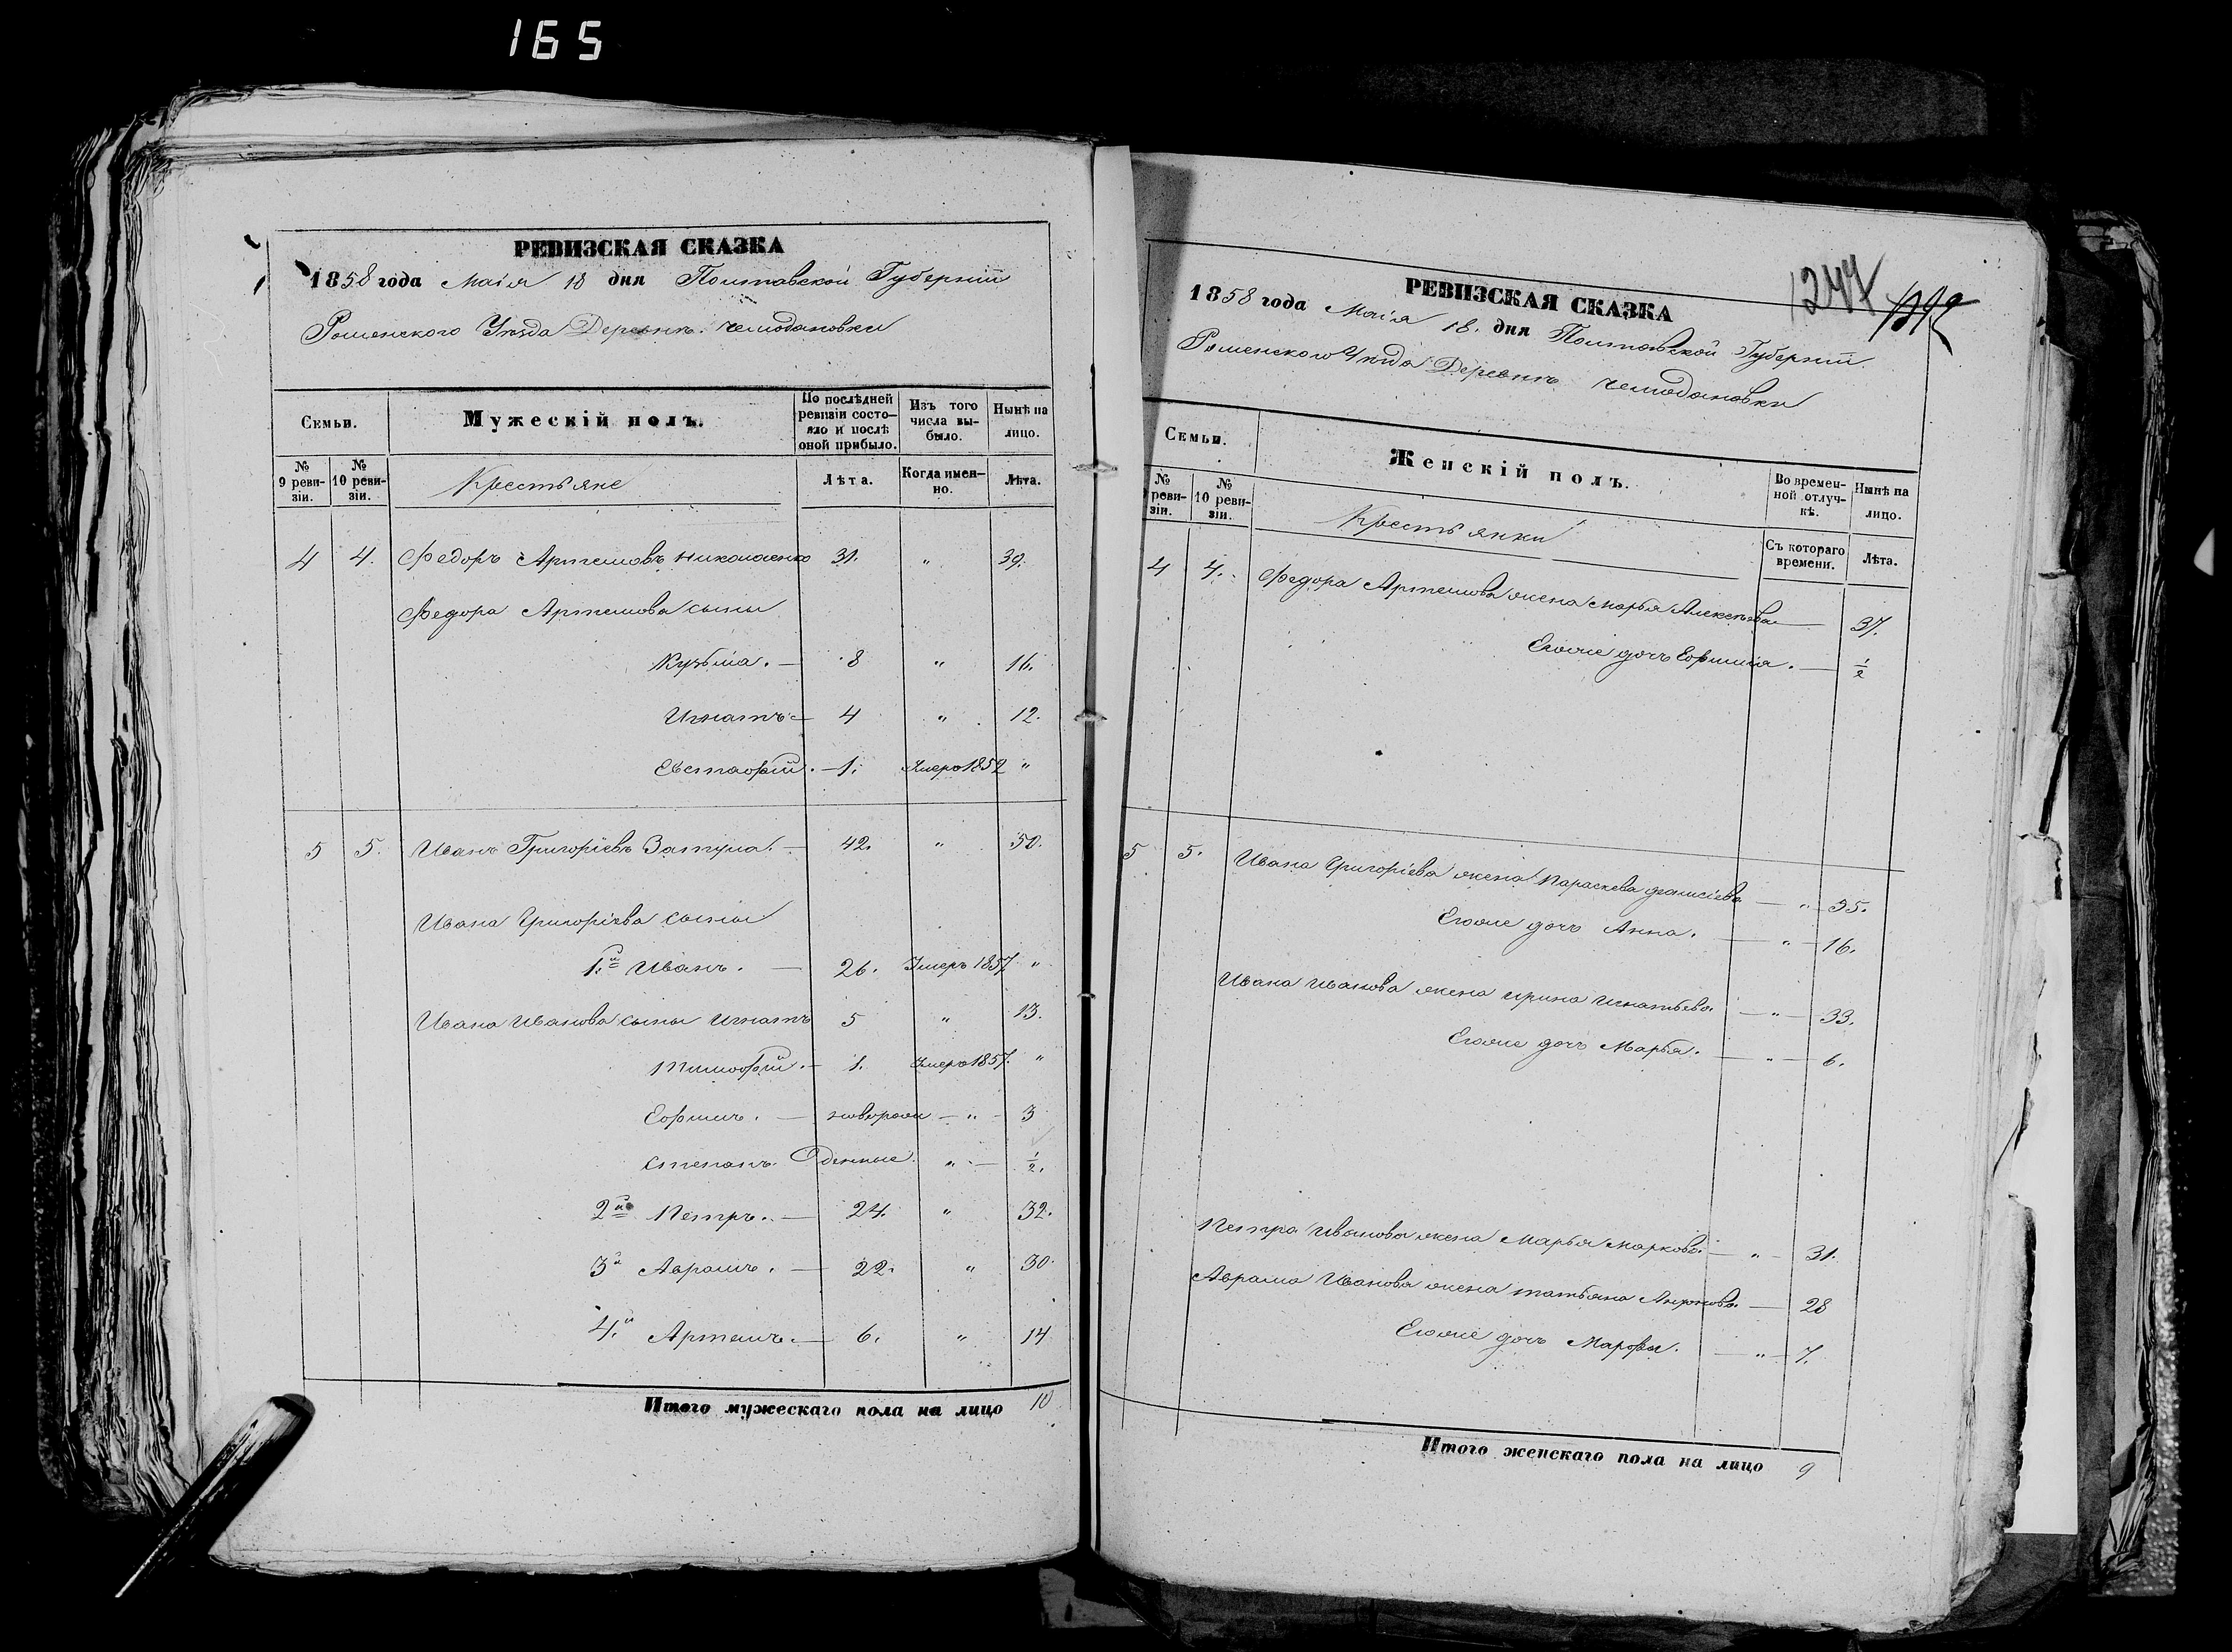 165
РЕВИЗСКАЯ СКАЗКА
1858 года Маія 18 дня Полтавской Губерніи
Роменского Уѣзда Деревни Чемодановки
Семьи.
Мужескій полъ.
По послѣдней ревизіи состояло и послѣ оной прибыло.
Изъ того числа выбыло.
Нынѣ на лицо.
№ 9 ревизіи.
№ 10 ревизіи.
Крестьяне
Лѣта.
Когда именно.
Лѣта.
4 4. Федоръ Артемовъ Николаенко 31. " 39.
Федора Артемова сыны
Кузьма. — 8 " 16.
Игнатъ — 4 " 12.
Евстафій. — 1. Умеръ 1852 "
5 5. Иванъ Григоріевъ Затула. — 42. " 50.
Ивана Григоріева сыны
1.й Иванъ. — 26. Умеръ 1857 "
Ивана Иванова сыны Игнатъ 5 " 13.
Тимофій. — 1. Умеръ 1857. "
Ефимъ. — новорож — " — 3
Степанъ. Оденные. " — 1/2.
2й Петръ. — 24. " 32.
3й Аврамъ. — 22. " 30.
4.й Артемъ. — 6. " 14
Итого мужескаго пола на лицо 10
1244
РЕВИЗСКАЯ СКАЗКА
1858 года Маія 18. дня Полтавской Губерніи
Роменского Уѣзда Деревни Чемодановки
Семьи.
Женскій полъ.
Во временной отлучкѣ.
Нынѣ на лицо.
№ 9 ревизіи.
№ 10 ревизіи.
Крестьянки
Съ котораго времени.
Лѣта.
4 4. Федора Артемова жена Марья Алексѣева — 37.
Егоже дочь Ефимія. — 1/2
5 5. Ивана Григоріева жена Параскева — " — 55.
Егоже дочь Анна. — " — 16.
Ивана Иванова жена Ирина Игнатьева. — " — 33.
Егоже дочь Марья. — " — 6.
Петра Иванова жена Марья Маркова. — " — 31.
Аврама Иванова жена Татьяна — 28
Егоже дочь Марфа. — " — 7.
Итого женскаго пола на лицо 9